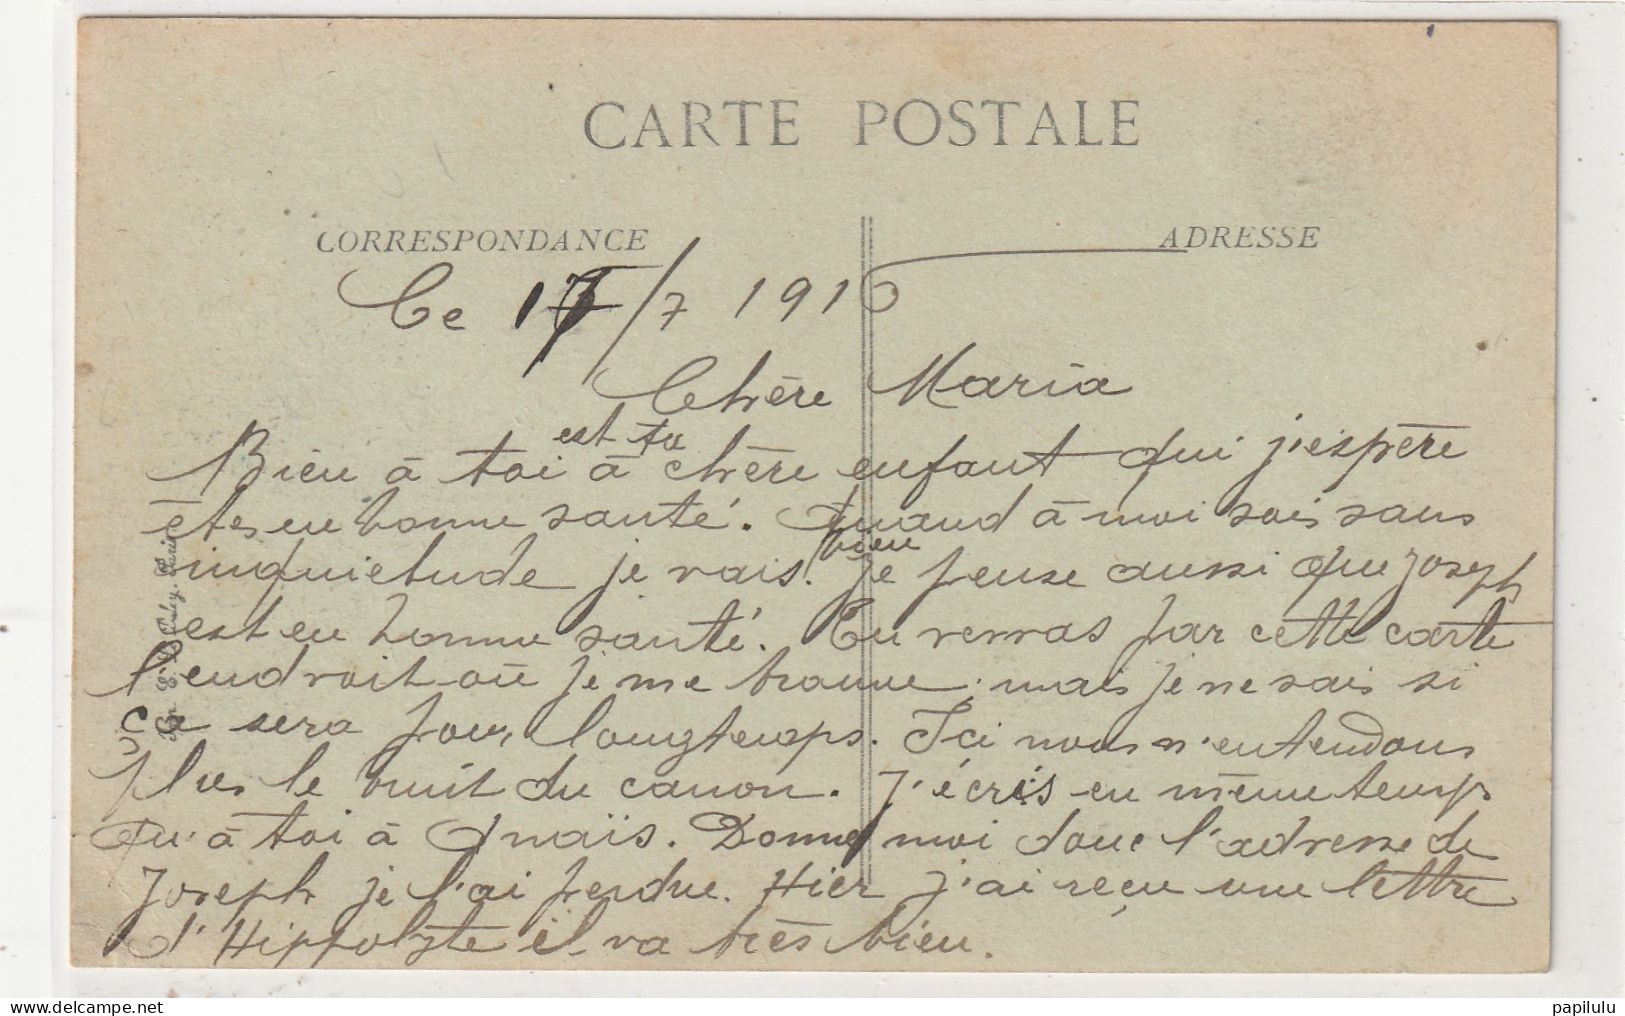 CARTE POSTALE
CORRESPONDANCE
ADRESSE
Ce 17/7 1916
Chère Maria
est ta
Bien à toi à chère enfant qui j'espère
êtes en bonne santé. Quand à moi sois sans
bien
inquietude je vais. je pense aussi que Joseph
est en bonne santé. Tu verras par cette carte
l'endroit où je me trouve, mais je ne sais si
ça sera pour longtemps. Ici nous n'entendons
plus le bruit du canon. J'écris en même temps
qu'à toi à Anaïs. Donne moi donc l'adresse de
Joseph je l'ai perdue. Hier j'ai reçu une lettre
d'Hippolyte il va très bien.
papilulu